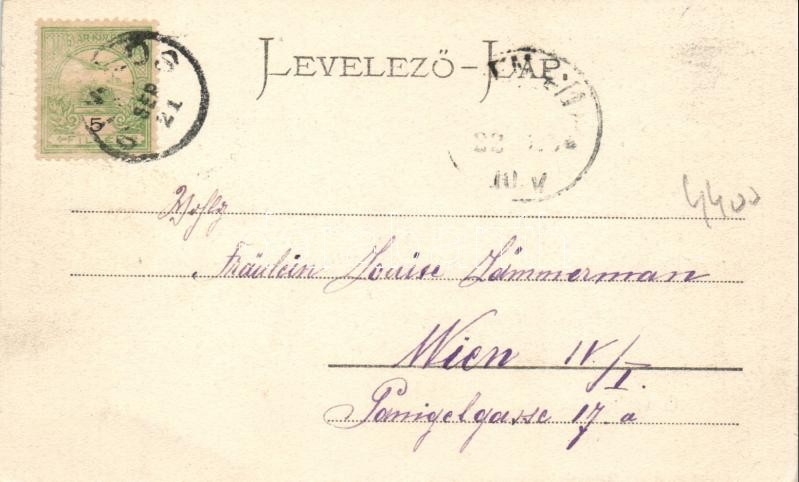 LEVELEZŐ-LAP.
5
SEP
21
4400
Wohlg
Fräulein Louise Zämmerman
Wien IV/I.
Panigelgasse 17. a